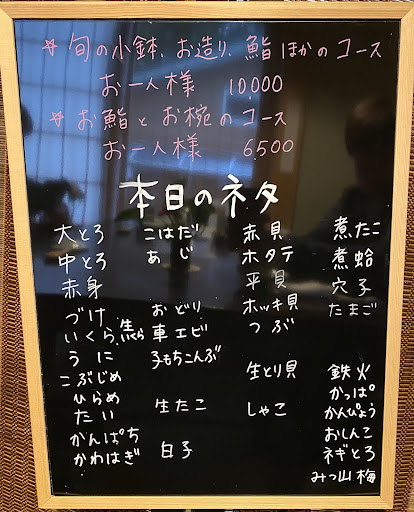 ☆旬の小鉢、お造り、鮨ほかのコース
お一人様 10,000
☆お鮨とお椀のコース
お一人様 6,500
本日のネタ
大とろ
中とろ
赤身
づけ
いくら、焦ら
うに
こぶじめ
ひらめ
たい
かんぱち
かわはぎ
こはだ
あじ
おどり
車エビ
子もちこんぶ
生たこ
白子
赤貝
ホタテ
平貝
ホッキ貝
つぶ
生とり貝
しゃこ
煮たこ
煮蛤
穴子
たまご
鉄火
かっぱ
かんぴょう
おしんこ
ネギとろ
みつ山梅